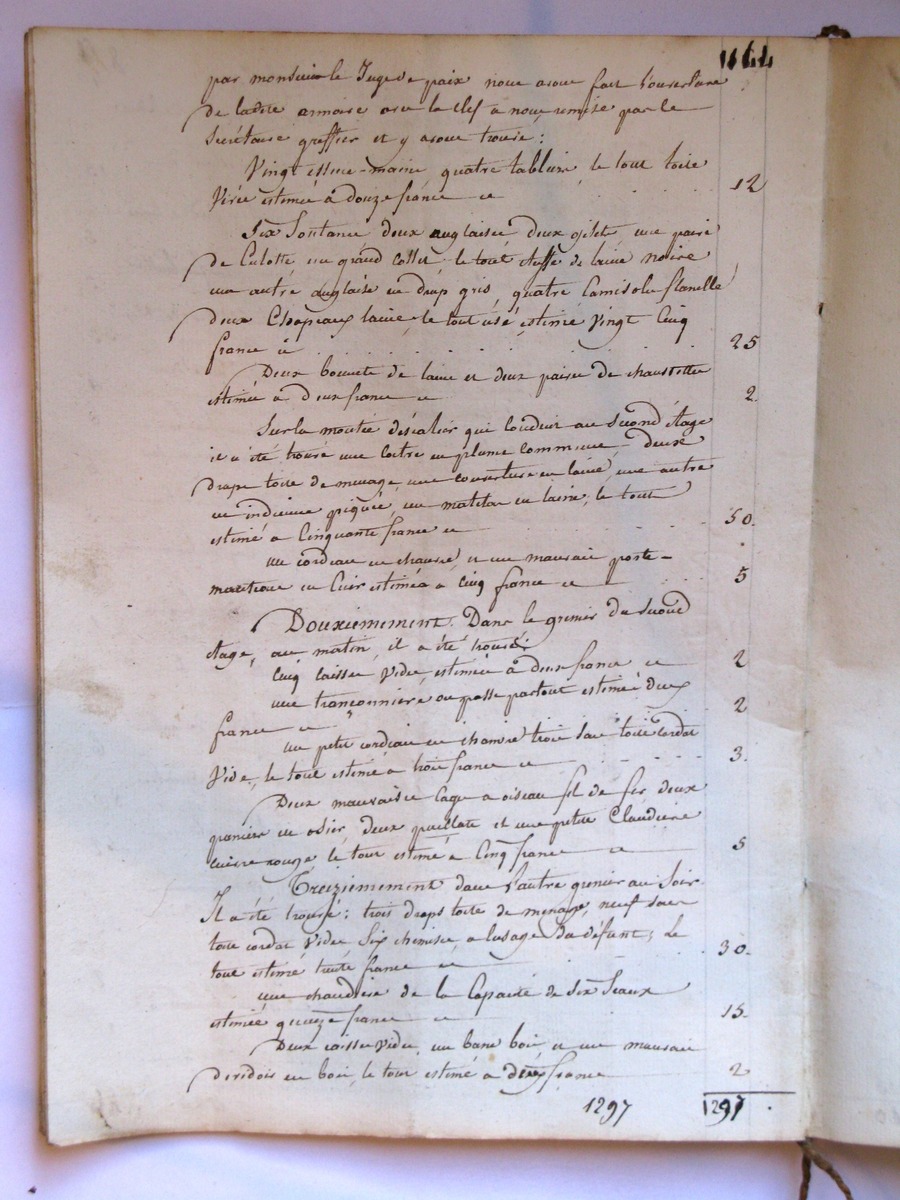 1144
par monsieur le Juge de paix nous avons fait l'ouverture
de ladite armoire avec la clef a nous remise par le
Secretaire greffier et y avons trouvé :
Vingt essuie-mains quatre tabliers, le tout toile
estimés à douze francs ci 12
Six Soutanes deux anglaises deux gilets une paire
de Culotte un grand collet le tout étoffe de laine noire
une autre anglaise en drap gris, quatre Camisoles flanelle
deux Chapeaux laine, le tout usé estimé Vingt Cinq
francs ci 25
Deux bonnets de laine et deux paires de chaussettes
estimés à deux francs ci 2.
Sur la montée d'escalier qui conduit au Second étage
il a été trouvé une coitre en plume commune, deux
draps toile de menage, une couverture en laine, une autre
en indienne piquée, un matelas en laine, le tout
estimé a Cinquante francs ci 50.
un cordeau en chanvre, et un mauvais porte-
manteau en Cuir estimés a cinq francs ci 5
Douxiemement. Dans le grenier du second
étage, au matin, il a été trouvé :
Cinq caisses vides, estimées à deux francs ci 2
une tronçonnière ou passe partout estimée deux
francs ci 2
un petit cordeau en chanvre trois sacs toile cordat
vides, le tout estimé a trois francs ci 3.
Deux mauvaises cages a oiseau fil de fer deux
paniers en osier, deux et une petite Chaudiere
cuivre rouge, le tout estimé à Cinq francs ci 5
Treiziemement dans l'autre grenier au Soir.
Il a été trouvé : trois draps toile de menage, neuf sacs
toile cordat vides Six chemises, a l'usage du défunt, le
tout estimé trente francs ci 30.
une chaudiere de la Capacité de Six Seaux
estimée quinze francs ci 15.
Deux caisses vides, un banc bois, et un mauvais
devidois en bois, le tout estimé a deux francs 2
1297 1297.